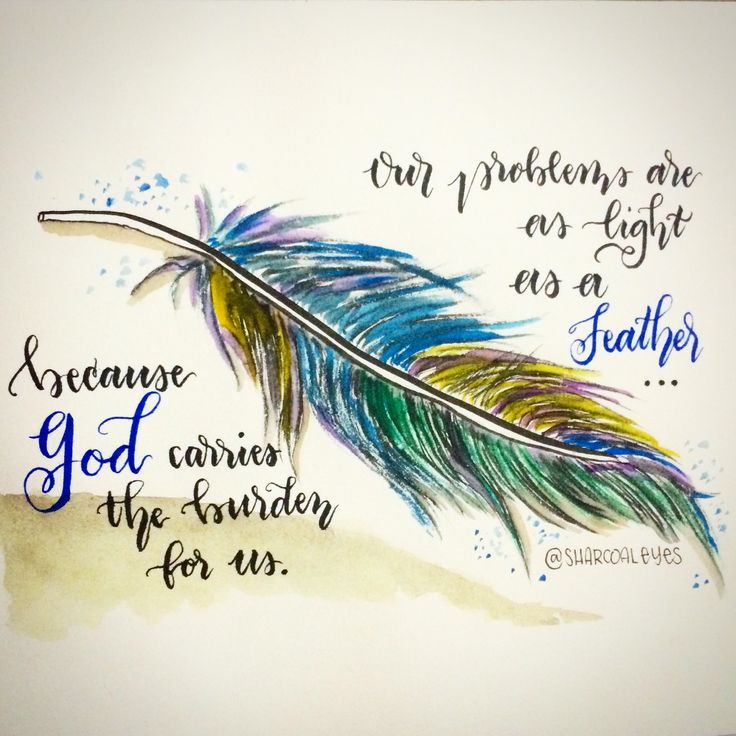 our problems are
as light
as a
feather
...
because
God carries
the burden
for us.
@SHARCOALEYES